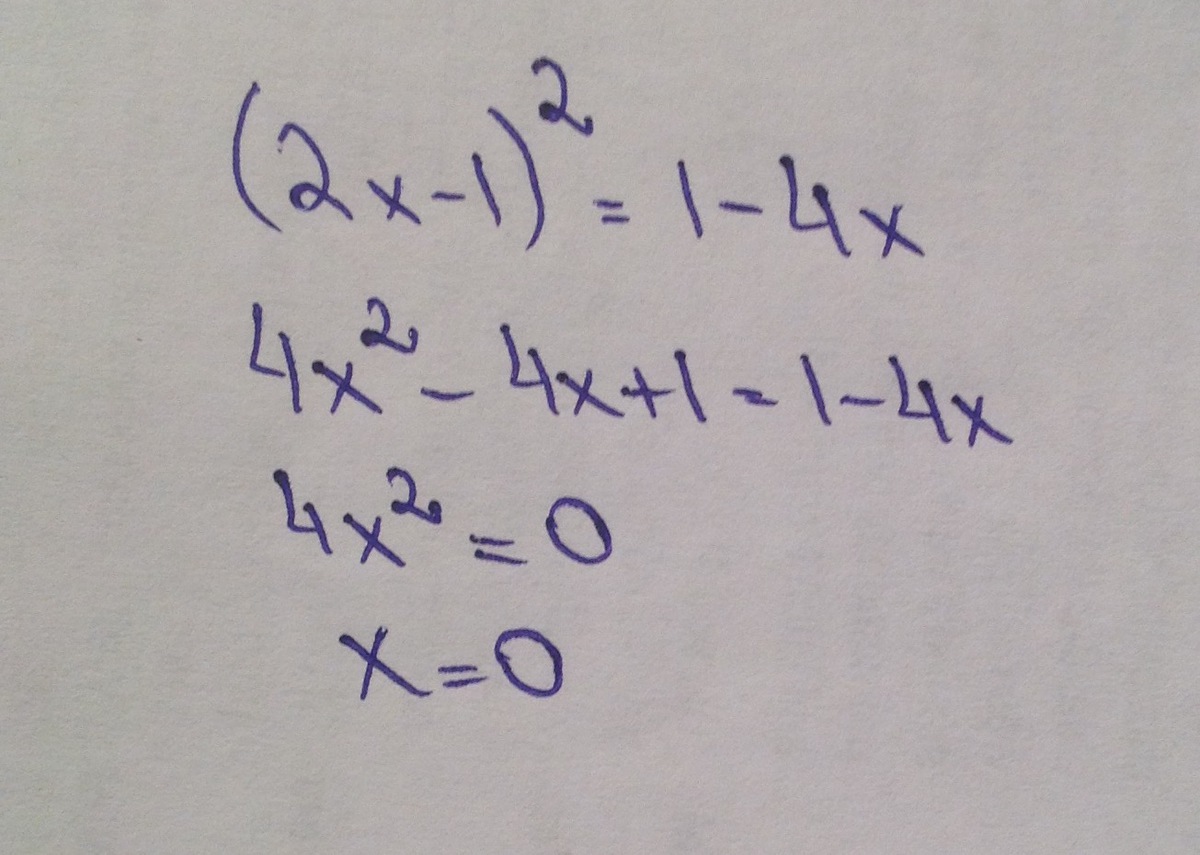 (2x-1)² = 1-4x
4x² - 4x+1 = 1-4x
4x² = 0
x = 0